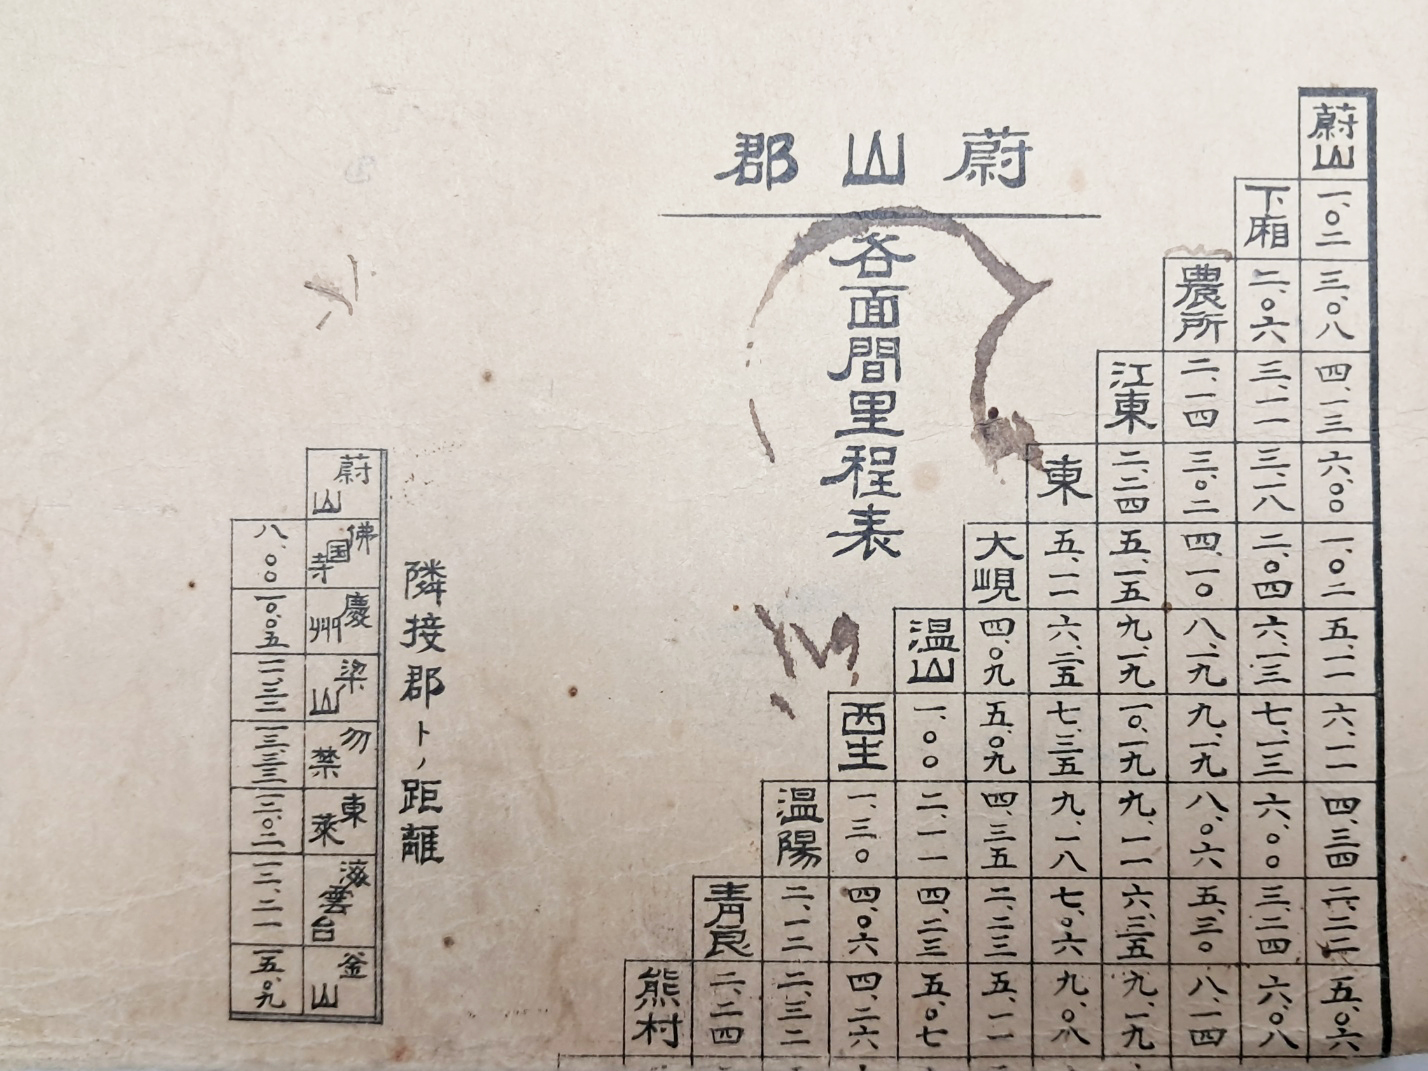 蔚山郡
各面間里程表
蔚山
下廂 一、〇二
農所 二、〇六 三、〇八
江東 二、一四 三、一一 四、一三
東 二、二四 三、〇二 三、一八 六、〇〇
大峴 五、一一 五、一五 四、一〇 二、〇四 一、〇二
温山 四、〇九 六、二五 九、一九 八、一九 六、一三 五、一一
西生 一、〇〇 五、〇九 七、三五 一〇、一九 九、一九 七、一三 六、一一
温陽 一、三〇 二、一一 四、三五 九、一八 九、一一 八、〇六 六、〇〇 四、三四
青良 二、一二 四、〇六 四、二三 二、二三 七、〇六 六、三五 五、三〇 三、二四
熊村 二、二四 二、三二 四、二六 五、〇七 五、一一 九、〇八 九、一九 八、一四 六、〇八 五、〇六
隣接郡トノ距離
蔚山
佛国寺 八、〇〇
慶州 一〇、〇五
梁山
勿禁
東萊 一二、〇二
海雲台 一二、二一
釜山 一五、〇九